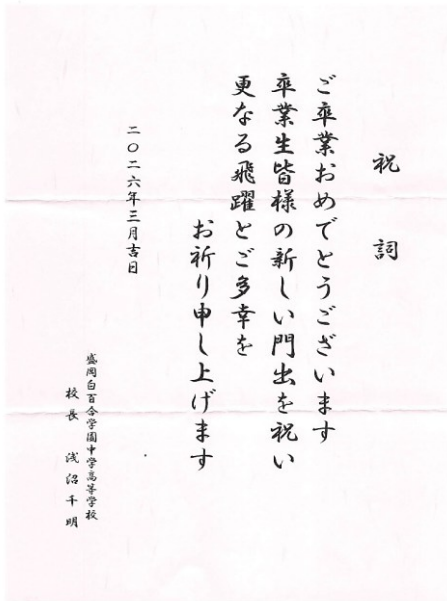 祝詞
ご卒業おめでとうございます
卒業生皆様の新しい門出を祝い
更なる飛躍とご多幸を
お祈り申し上げます
二〇二六年三月吉日
盛岡白百合学園中学高等学校
校長 浅沼千明